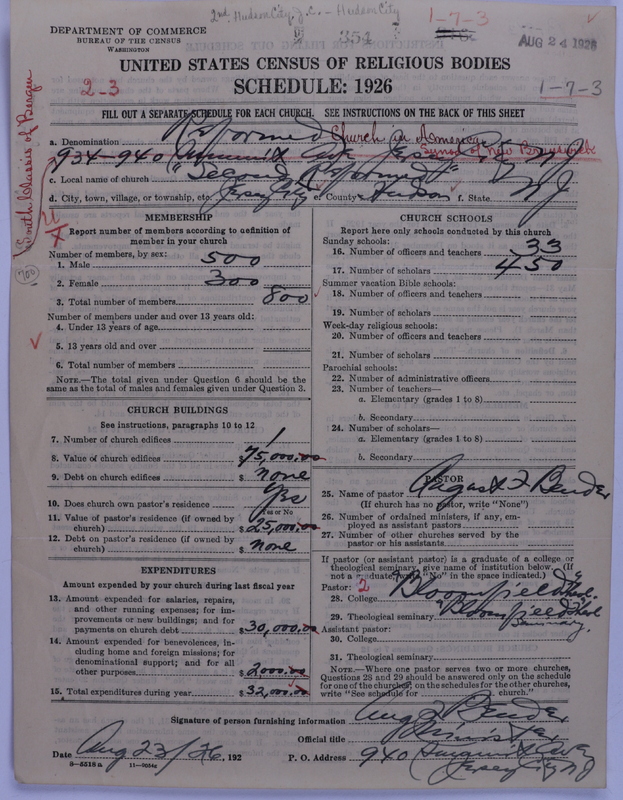 2nd. Hudson City, J.C. - Hudson City
1-7-3
354
AUG 24 1926
DEPARTMENT OF COMMERCE
BUREAU OF THE CENSUS
WASHINGTON
UNITED STATES CENSUS OF RELIGIOUS BODIES
SCHEDULE: 1926
2-3
1-7-3
FILL OUT A SEPARATE SCHEDULE FOR EACH CHURCH. SEE INSTRUCTIONS ON THE BACK OF THIS SHEET
South Classis of Bergen
a. Denomination Reformed Church in America
934-940 Summit Ave Jersey City N J
Synod of New Brunswick
c. Local name of church "Second Reformed"
d. City, town, village, or township, etc. Jersey City e. County Hudson f. State N J
700
MEMBERSHIP
Report number of members according to definition of member in your church
Number of members, by sex:
1. Male 500
2. Female 300
3. Total number of members 800
Number of members under and over 13 years old:
4. Under 13 years of age
5. 13 years old and over
6. Total number of members
NOTE.—The total given under Question 6 should be the same as the total of males and females given under Question 3.
CHURCH BUILDINGS
See instructions, paragraphs 10 to 12
7. Number of church edifices 1
8. Value of church edifices $ 75,000.00
9. Debt on church edifices $ none
10. Does church own pastor's residence? Yes
Yes or No
11. Value of pastor's residence (if owned by church) $ 25,000.00
12. Debt on pastor's residence (if owned by church) $ none
EXPENDITURES
Amount expended by your church during last fiscal year
13. Amount expended for salaries, repairs, and other running expenses; for improvements or new buildings; and for payments on church debt $ 30,000.00
14. Amount expended for benevolences, including home and foreign missions; for denominational support; and for all other purposes $ 2000.00
15. Total expenditures during year $ 32,000.00
CHURCH SCHOOLS
Report here only schools conducted by this church
Sunday schools:
16. Number of officers and teachers 33
17. Number of scholars 450
Summer vacation Bible schools:
18. Number of officers and teachers
19. Number of scholars
Week-day religious schools:
20. Number of officers and teachers
21. Number of scholars
Parochial schools:
22. Number of administrative officers
23. Number of teachers—
a. Elementary (grades 1 to 8)
b. Secondary
24. Number of scholars—
a. Elementary (grades 1 to 8)
b. Secondary
PASTOR
25. Name of pastor August F Bender
(If church has no pastor, write "None")
26. Number of ordained ministers, if any, employed as assistant pastors
27. Number of other churches served by the pastor or his assistants
If pastor (or assistant pastor) is a graduate of a college or theological seminary, give name of institution below. (If not a graduate, write "No" in the space indicated.)
Pastor: 2
28. College Bloomfield
29. Theological seminary Bloomfield Theol. Seminary.
Assistant pastor:
30. College
31. Theological seminary
NOTE.—Where one pastor serves two or more churches, Questions 28 and 29 should be answered only on the schedule for one of the churches; on the schedules for the other churches, write "See schedule for church."
Signature of person furnishing information Aug F Bender
Official title Minister
Date Aug 23/26, 192
P. O. Address 940 Summit Ave
Jersey City N J
8-5518 a 11-9084